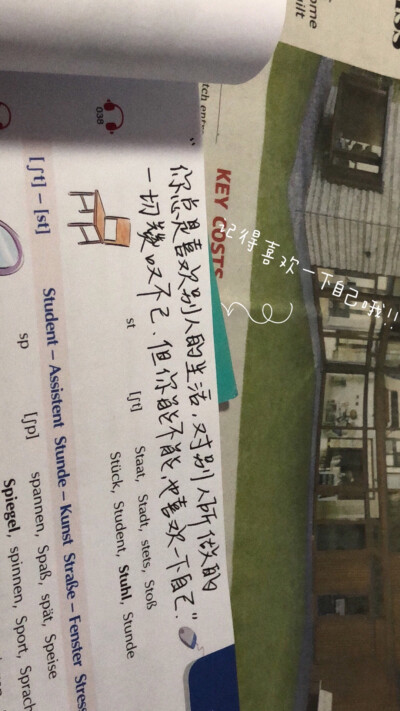 ome
uilt
KEY COSTS
记得喜欢一下自己哦!!
“你总是喜欢别人的生活,对别人所做的
一切赞叹不已.但你能不能,也喜欢一下自己.”
st [ʃt] Staat, Stadt, stets, Stoß
Stück, Student, Stuhl, Stunde
038
[ʃt] – [st] Student – Assistent Stunde – Kunst Straße – Fenster Stres
sp [ʃp] spannen, Spaß, spät, Speise
Spiegel, spinnen, Sport, Sprach